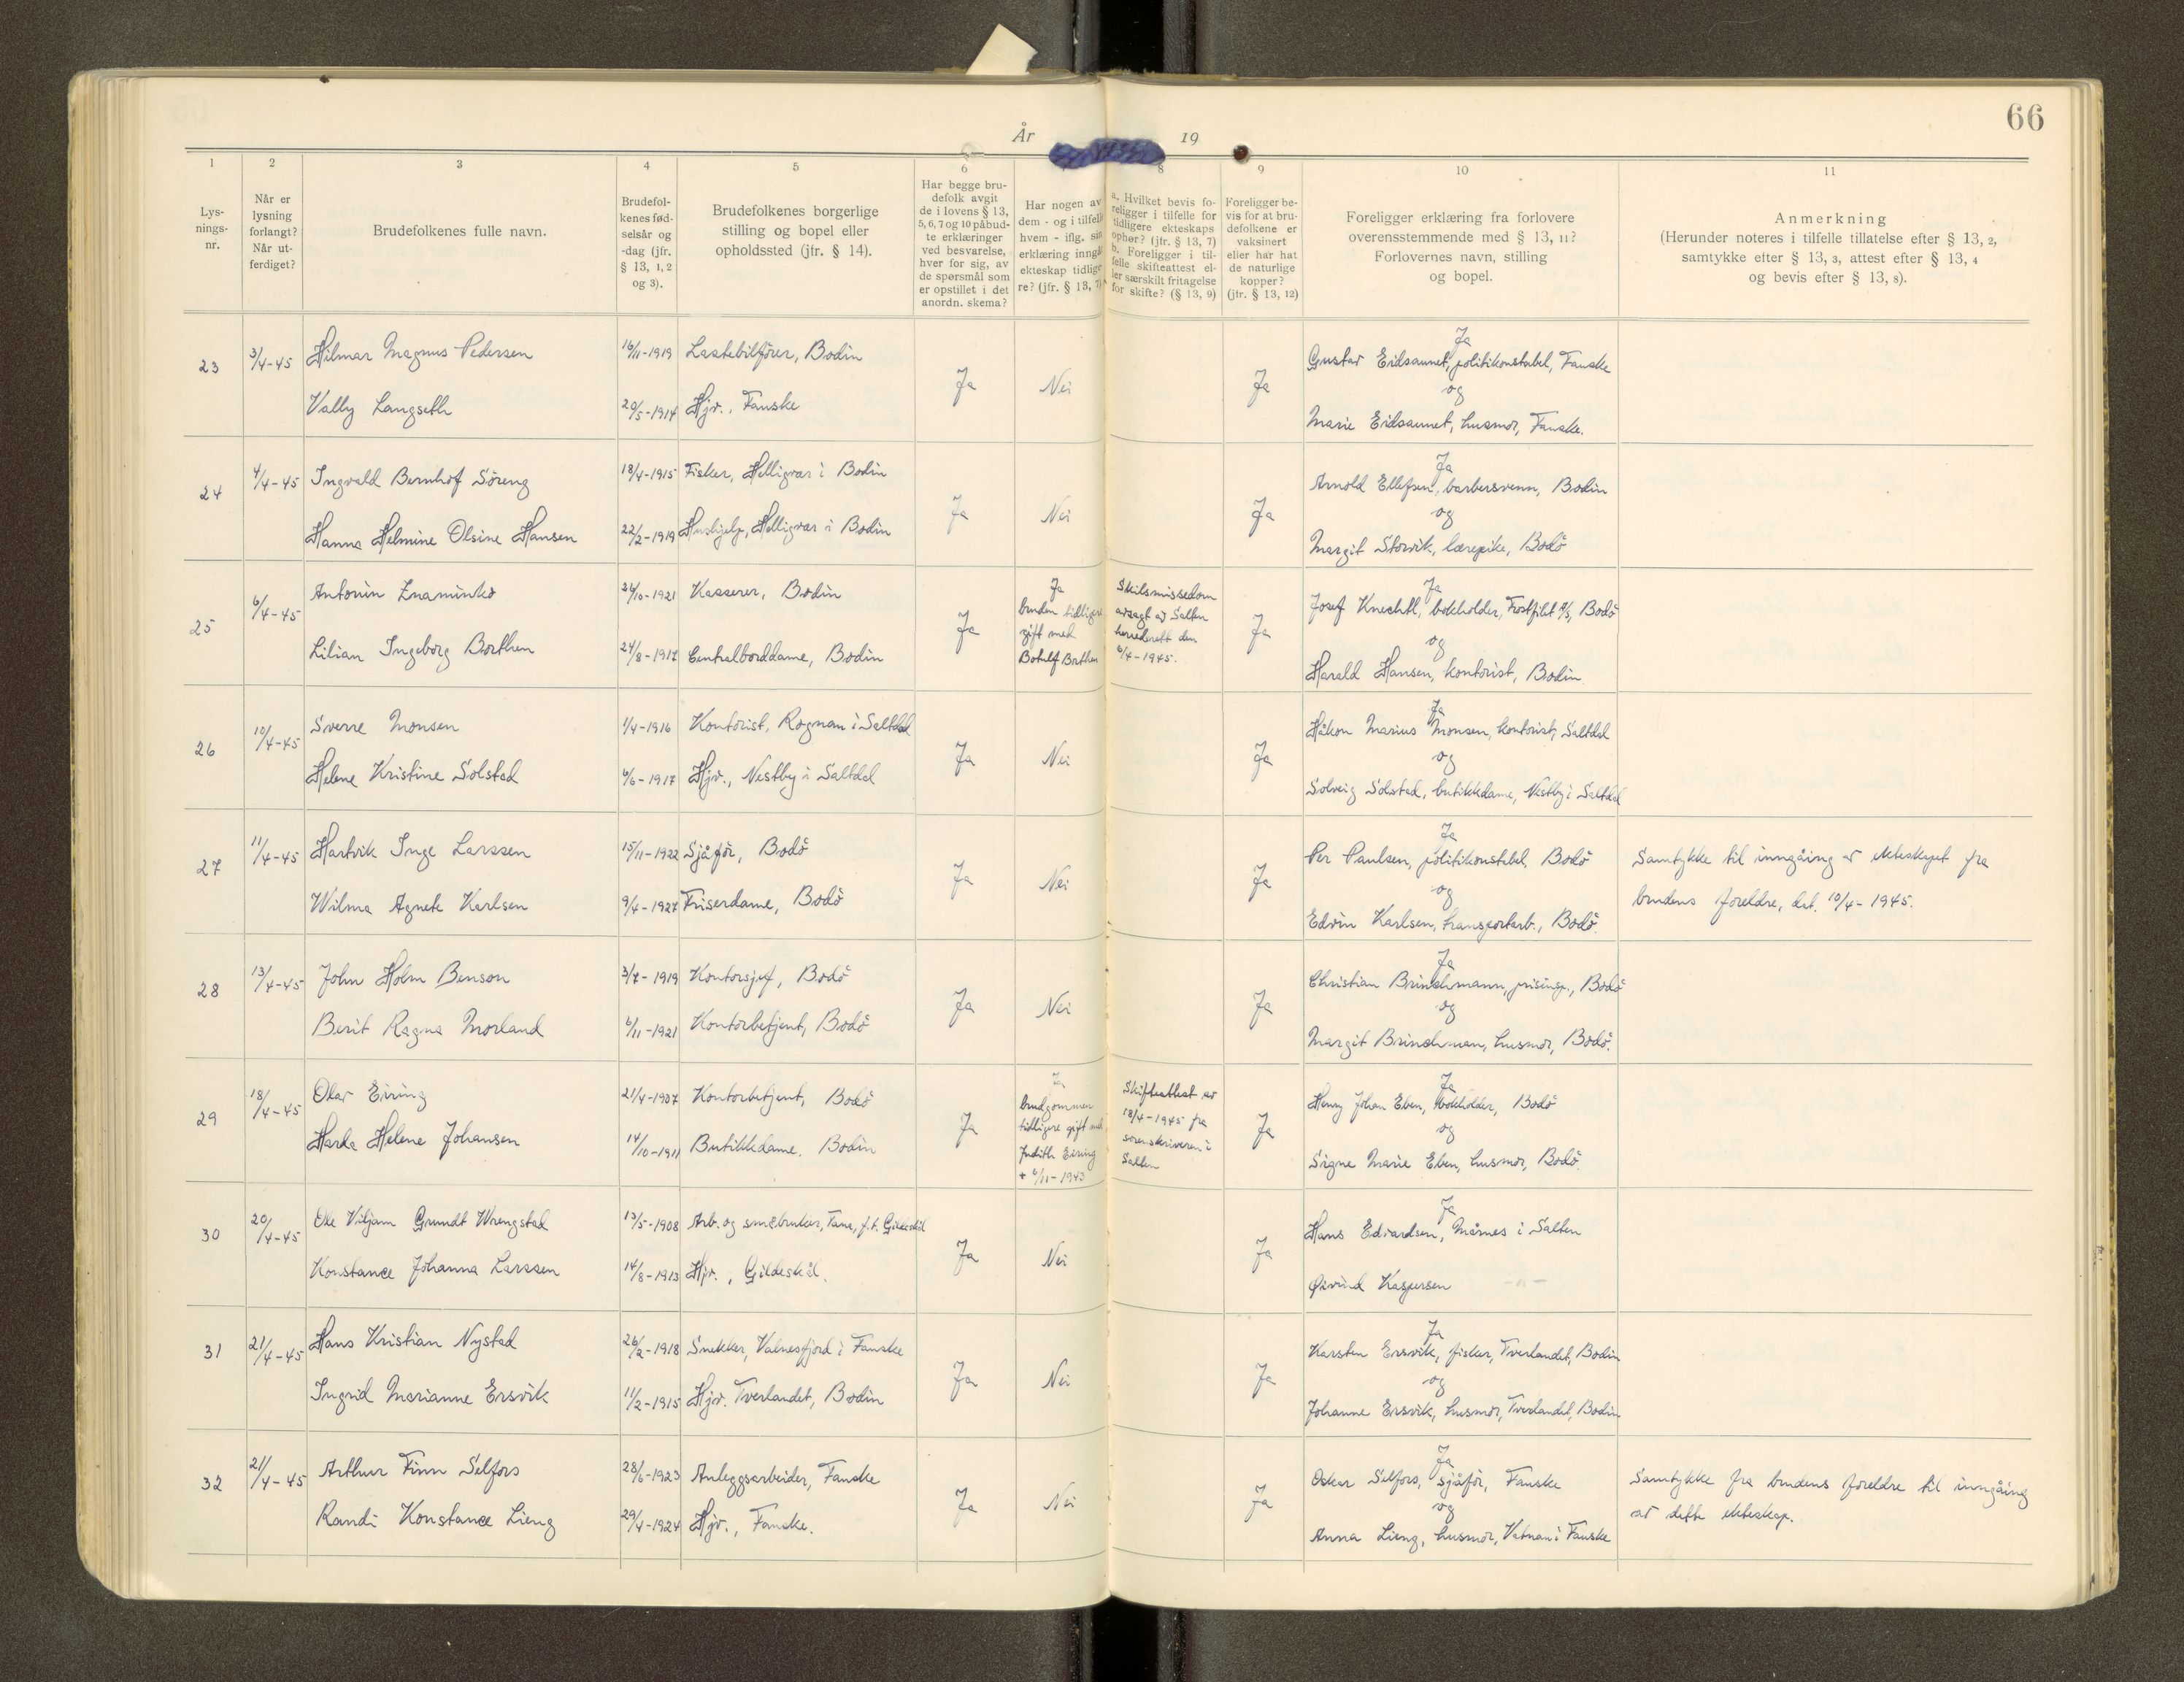 66
År 19
1 2 3 4 5 6 8 9 10 11
Lys-
nings-
nr.
Når er
lysning
forlangt?
Når ut-
ferdiget?
Brudefolkenes fulle navn.
Brudefol-
kenes fød-
selsår og
-dag (jfr.
§ 13, 1, 2
og 3).
Brudefolkenes borgerlige
stilling og bopel eller
opholdssted (jfr. § 14).
Har begge bru-
defolk avgit
de i lovens § 13,
5, 6, 7 og 10 påbud-
te erklæringer
ved besvarelse,
hver for sig, av
de spørsmål som
er opstillet i det
anordn. skema?
Har nogen av
dem - og i tilfelle
hvem - iflg. sin
erklæring inngå
ekteskap tidlige
re? (jfr. § 13, 7)
a. Hvilket bevis fo-
religger i tilfelle for
tidligere ekteskaps
ophør? (jfr. § 13, 7)
b. Foreligger i til-
felle skifteattest el-
ler særskilt fritagelse
for skifte? (§ 13, 9)
Foreligger be-
vis for at bru-
defolkene er
vaksinert
eller har hat
de naturlige
kopper?
(jfr. § 13, 12)
Foreligger erklæring fra forlovere
overensstemmende med § 13, 11?
Forlovernes navn, stilling
og bopel.
Anmerkning
(Herunder noteres i tilfelle tillatelse efter § 13, 2,
samtykke efter § 13, 3, attest efter § 13, 4
og bevis efter § 13, 8).
23 3/4-45 Hilmar Magnus Pedersen 16/11-1919 Lastebilfører, Bodin
Vally Langseth 20/5-1914 Hjv., Fauske
Ja Nei Ja
Ja
Gustav Eidsaunet, politikonstabel, Fauske
og
Marie Eidsaunet, husmor, Fauske.
24 4/4-45 Ingvald Bernhof Söreng 18/4-1915 Fisker, Helligvær i Bodin
Hanna Helmine Olsine Hansen 22/2-1919 Hushjelp, Helligvær i Bodin
Ja Nei Ja
Ja
Arnold Ellefsen, barbersvenn, Bodin
og
Margit Storvik, lærepike, Bodö
25 6/4-45 Antonin Znaminko 26/10-1921 Kasserer, Bodin
Lilian Ingeborg Borthen 24/8-1917 Centralborddame, Bodin
Ja
Ja
bruden tidligere
gift med
Botulf Borthen
Skilsmissedom
avsagt av Salten
herredsrett den
6/4-1945.
Ja
Ja
Josef Knechtl, bokholder, Frostfilet A/S, Bodö
og
Harald Hansen, kontorist, Bodin
26 10/4-45 Sverre Monsen 1/4-1916 Kontorist, Rognan i Saltdal
Helene Kristine Solstad 6/6-1917 Hjv., Nestby i Saltdal
Ja Nei Ja
Ja
Håkon Marius Monsen, kontorist, Saltdal
og
Solveig Solstad, butikkdame, Nestby i Saltdal
27 11/4-45 Hartvik Inge Larssen 15/11-1922 Sjåför, Bodö
Wilma Agnete Karlsen 9/4-1927 Friserdame, Bodö
Ja Nei Ja
Ja
Per Paulsen, politikonstabel, Bodö
og
Edvin Karlsen, transportarb., Bodö.
Samtykke til inngåing av ekteskapet fra
brudens foreldre, dat. 10/4-1945.
28 13/4-45 John Holm Benson 3/7-1919 Kontorsjef, Bodö
Berit Ragna Morland 6/11-1921 Kontorbetjent, Bodö
Ja Nei Ja
Ja
Christian Brinchmann, prisinsp., Bodö
og
Margit Brinchman, husmor, Bodö.
29 18/4-45 Olav Eiring 21/4-1907 Kontorbetjent, Bodö
Harda Helene Johansen 14/10-1911 Butikkdame. Bodin
Ja
Ja
brudgommen
tidligere gift med
Judith Eiring
+ 6/11-1943
Skifteattest av
18/4-1945 fra
sorenskriveren i
Salten
Ja
Ja
Henry Johan Eben, bokholder, Bodö
og
Signe Marie Eben, husmor, Bodö.
30 20/4-45 Ole Viljam Grundt Wrengstad 13/5-1908 Arb. og småbruker, Tana, f.t. Gildeskål
Konstance Johanna Larssen 14/8-1913 Hjv., Gildeskål.
Ja Nei Ja
Ja
Hans Edvardsen, Mårnes i Salten
Øivind Kaspersen -"-
31 21/4-45 Hans Kristian Nystad 26/2-1918 Snekker, Valnesfjord i Fauske
Ingrid Marianne Ersvik 11/2-1915 Hjv. Tverlandet, Bodin
Ja Nei Ja
Ja
Karsten Ersvik, fisker, Tverlandet, Bodin
og
Johanne Ersvik, husmor, Tverlandet, Bodin
32 21/4-45 Arthur Finn Selfors 28/6-1923 Anleggsarbeider, Fauske
Randi Konstance Lieng 29/4-1924 Hjv., Fauske.
Ja Nei Ja
Ja
Oskar Selfors, sjåför, Fauske
og
Anna Lieng, husmor, Vatnan i Fauske
Samtykke fra brudens foreldre til inngåing
av dette ekteskap.